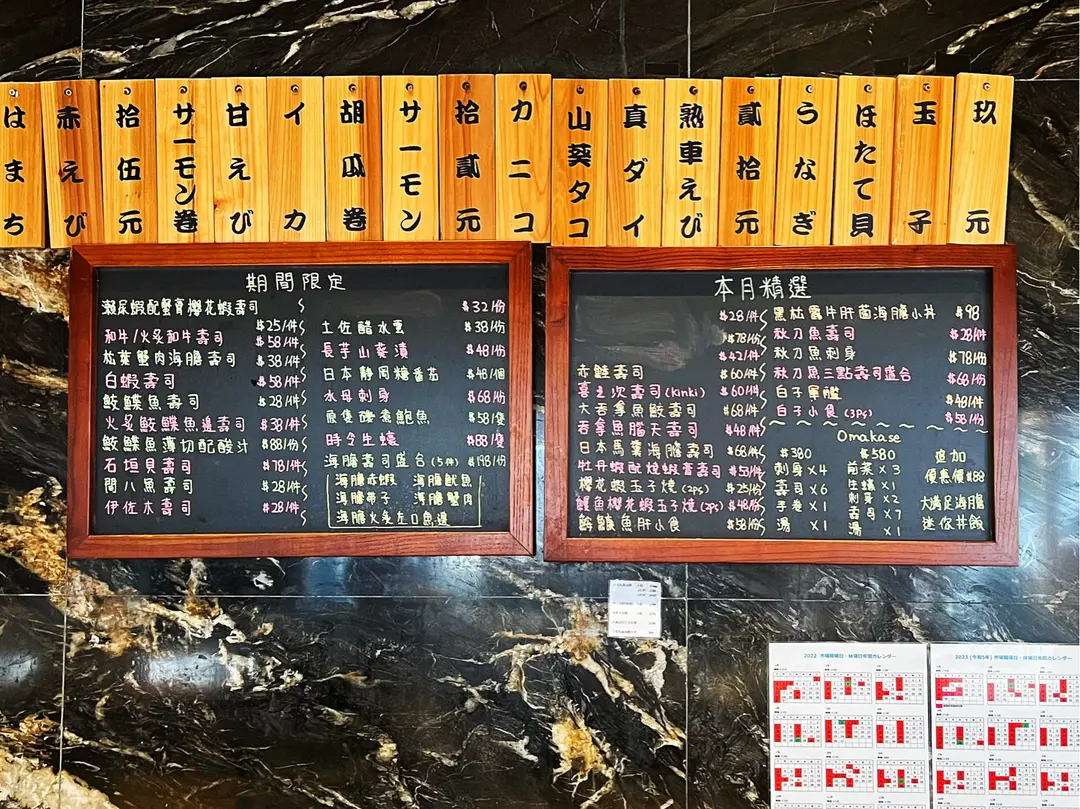 はまち
赤えび
拾伍元
サーモン巻
甘えび
イカ
胡瓜巻
サーモン
拾貳元
カニコ
山葵タコ
真ダイ
熟車えび
貳拾元
うなぎ
ほたて貝
玉子
玖元
期間限定
瀨尿蝦配蟹膏櫻花蝦壽司
$25/件
和牛/火炙和牛壽司 $58/件
松葉蟹肉海膽壽司 $38/件
白蝦壽司 $58/件
鮫鰈魚壽司 $28/件
火炙鮫鰈魚邊壽司 $38/件
鮫鰈魚薄切配酸汁 $88/份
石垣貝壽司 $78/件
間八魚壽司 $28/件
伊佐木壽司 $28/件
$32/份
土佐醋水雲 $38/份
長芋山葵漬 $48/份
日本靜岡糖番茄 $48/個
水母刺身 $68/份
原隻磯煮鮑魚 $58/隻
時令生蠔 $88/隻
海膽壽司盛合(5件) $198/份
海膽赤蝦 海膽魷魚
海膽帶子 海膽蟹肉
海膽火炙左口魚邊
本月精選
$28/件
$78/件
$42/件
赤鯥壽司 $60/件
喜之次壽司(Kinki) $60/件
大吞拿魚鮫壽司 $68/件
吞拿魚腦天壽司 $48/件
日本馬糞海膽壽司 $68/件
牡丹蝦配燒蝦膏壽司 $53/件
櫻花蝦玉子燒(2ps) $25/份
鰻魚櫻花蝦玉子燒(2ps) $48/份
鮟鱇魚肝小食 $58/份
黑松露牛肝菌海膽小丼 $98
秋刀魚壽司 $28/件
秋刀魚刺身 $78/份
秋刀魚三點壽司盛合 $68/份
白子軍艦 $48/件
白子小食(3Ps) $58/份
Omakase
$380
刺身 x4
壽司 x6
手卷 x1
湯 x1
$580
前菜 x3
生蠔 x1
刺身 x2
壽司 x7
湯 x1
追加
優惠價$88
大滿足海膽
迷你丼飯
2022 市場開場日・休場日年間カレンダー
2023 (令和5年) 市場開場日・休場日年間カレンダー